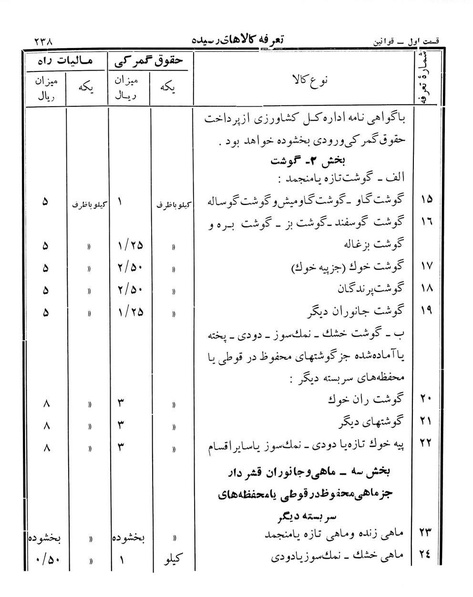 قسمت اول ــ قوانین تعرفه کالاهای رسیده ۲۳۸
شمارهٔ تعرفه نوع کالا حقوق گمرکی مالیات راه
میزان ریال یکه میزان ریال یکه
با گواهی نامه اداره کل کشاورزی از پرداخت
حقوق گمرکی ورودی بخشوده خواهد بود .
بخش ۲ــ گوشت
الف ــ گوشت تازه یا منجمد :
۱۵ گوشت گاو ــ گوشت گاومیش و گوشت گوساله کیلو با ظرف ۱ کیلو با ظرف ۵
۱۶ گوشت گوسفند ــ گوشت بز ــ گوشت بره و
گوشت بزغاله » ۱/۲۵ » ۵
۱۷ گوشت خوك (جز پیه خوك) » ۲/۵۰ » ۵
۱۸ گوشت پرندگان » ۲/۵۰ » ۵
۱۹ گوشت جانوران دیگر » ۱/۲۵ » ۵
ب ــ گوشت خشك ــ نمك سوز ــ دودی ــ پخته
یا آماده شده جز گوشتهای محفوظ در قوطی یا
محفظه‌های سربسته دیگر :
۲۰ گوشت ران خوك » ۳ » ۸
۲۱ گوشتهای دیگر » ۳ » ۸
۲۲ پیه خوك تازه یا دودی ــ نمك سوز یا سایر اقسام » ۳ » ۸
بخش سه ــ ماهی و جانوران قشر دار
جز ماهی محفوظ در قوطی یا محفظه‌های
سربسته دیگر
۲۳ ماهی زنده و ماهی تازه یا منجمد » بخشوده » بخشوده
۲۴ ماهی خشك ــ نمك سوز یا دودی کیلو ۱ » ۰/۵۰